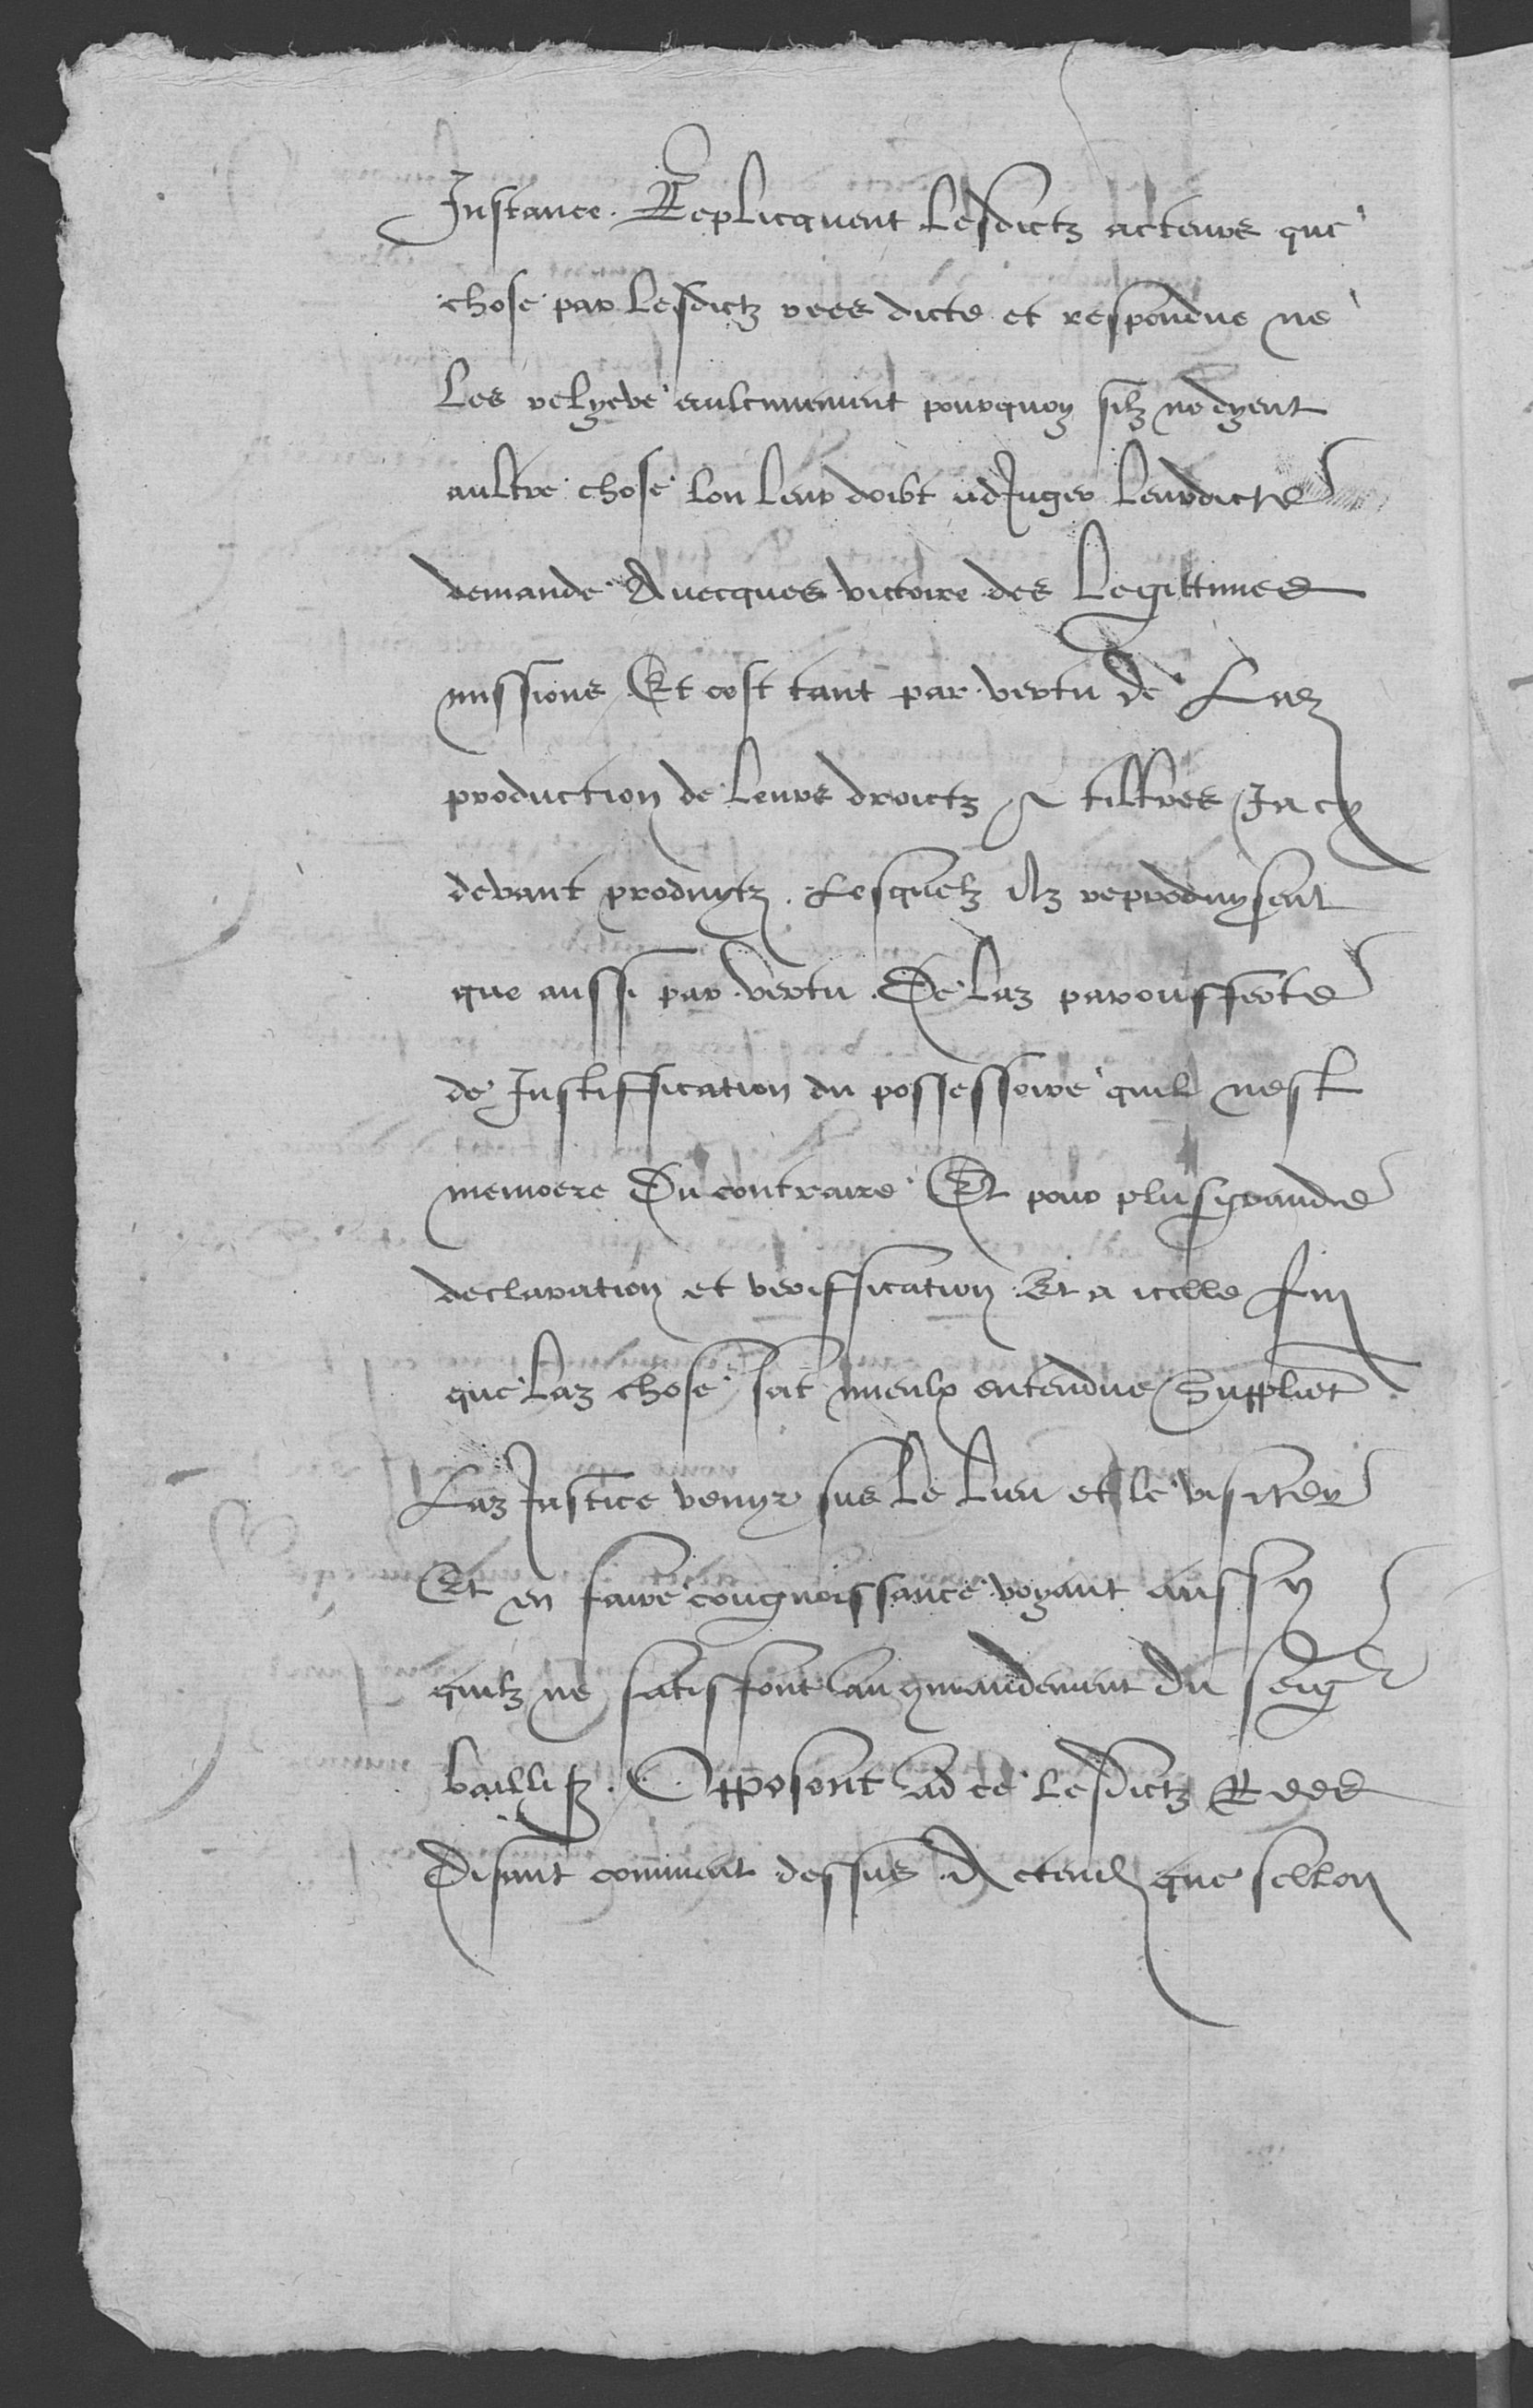 Instance. Replicquent lesdictz acteurs que
chose par lesdictz rees dicte et respondue ne
les relyeve aulcunement pourquoy silz ne dyent
aultre chose lon leur doibt adJuger leurdicte
demande Avecques victoire des legittimes
missions Et cest tant par vertu de Laz
production de leurs droictz & tiltres Ja cy
devant produytz. Lesquelz ilz reproduysent
que aussi par vertu. De laz paroufferte
de Justiffication du possessoire quil nest
memoere Du contraire Et pour plus grande
declaration et veriffication Et a icelle fin
que laz chose soit mieulx entendue Supplient
Laz Justice venyr sus le lieu et le visiter
Et en faire congnoissance voyant aussy
quilz ne satisfont au mandement du seigr
baillifz. Opposent ad ce lesdictz Rees
Disant comment dessus Actendu que sellon